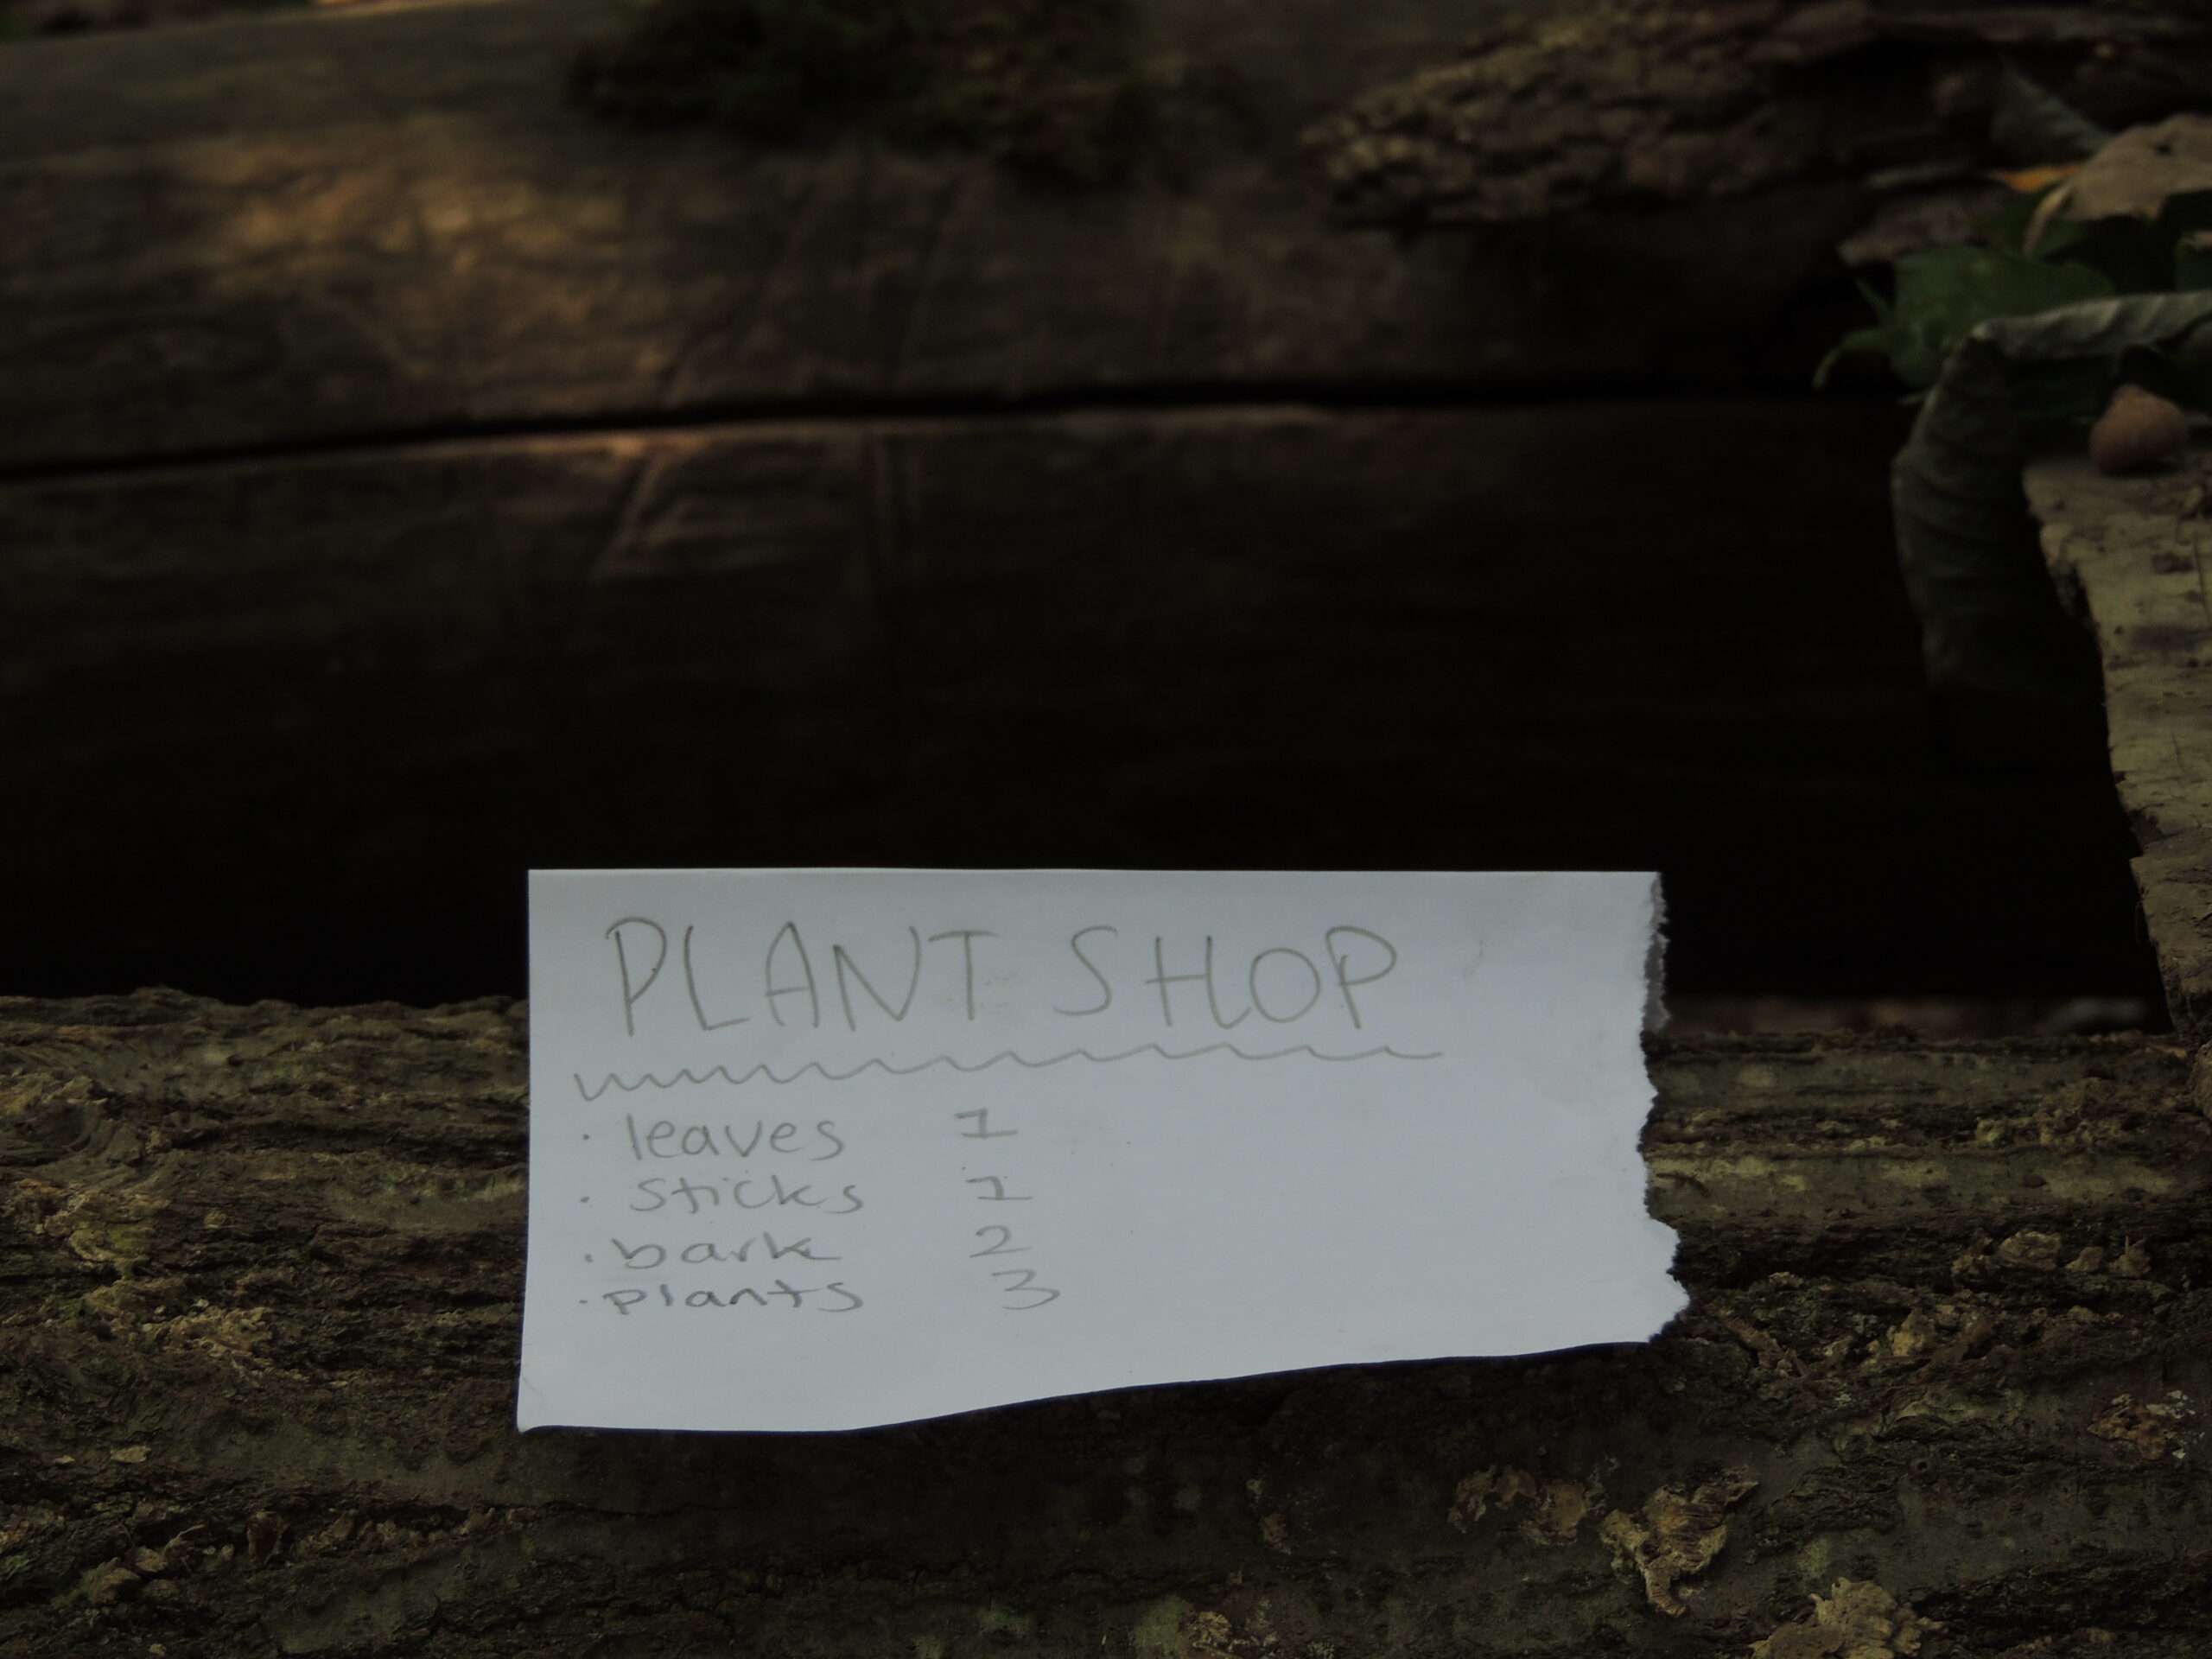 PLANT SHOP
· leaves 1
· sticks 1
· bark 2
· plants 3